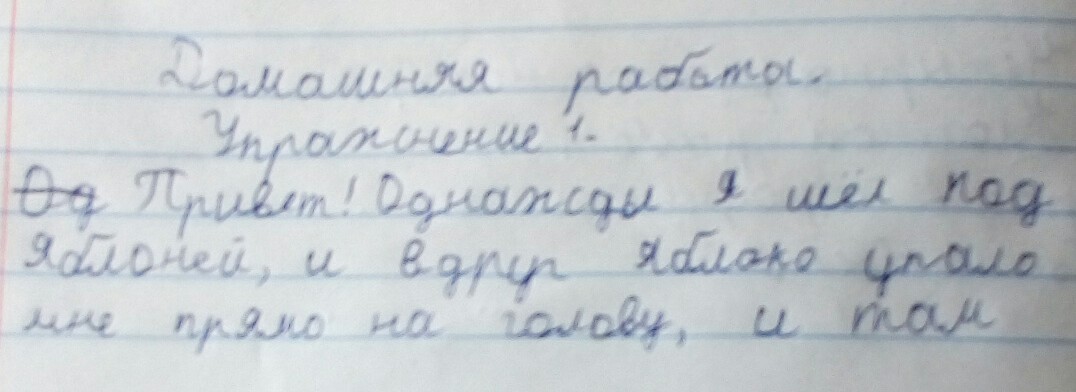 Домашняя работа.
Упражнение 1.
Од Привет! Однажды я шёл под
яблоней, и вдруг яблоко упало
мне прямо на голову, и там